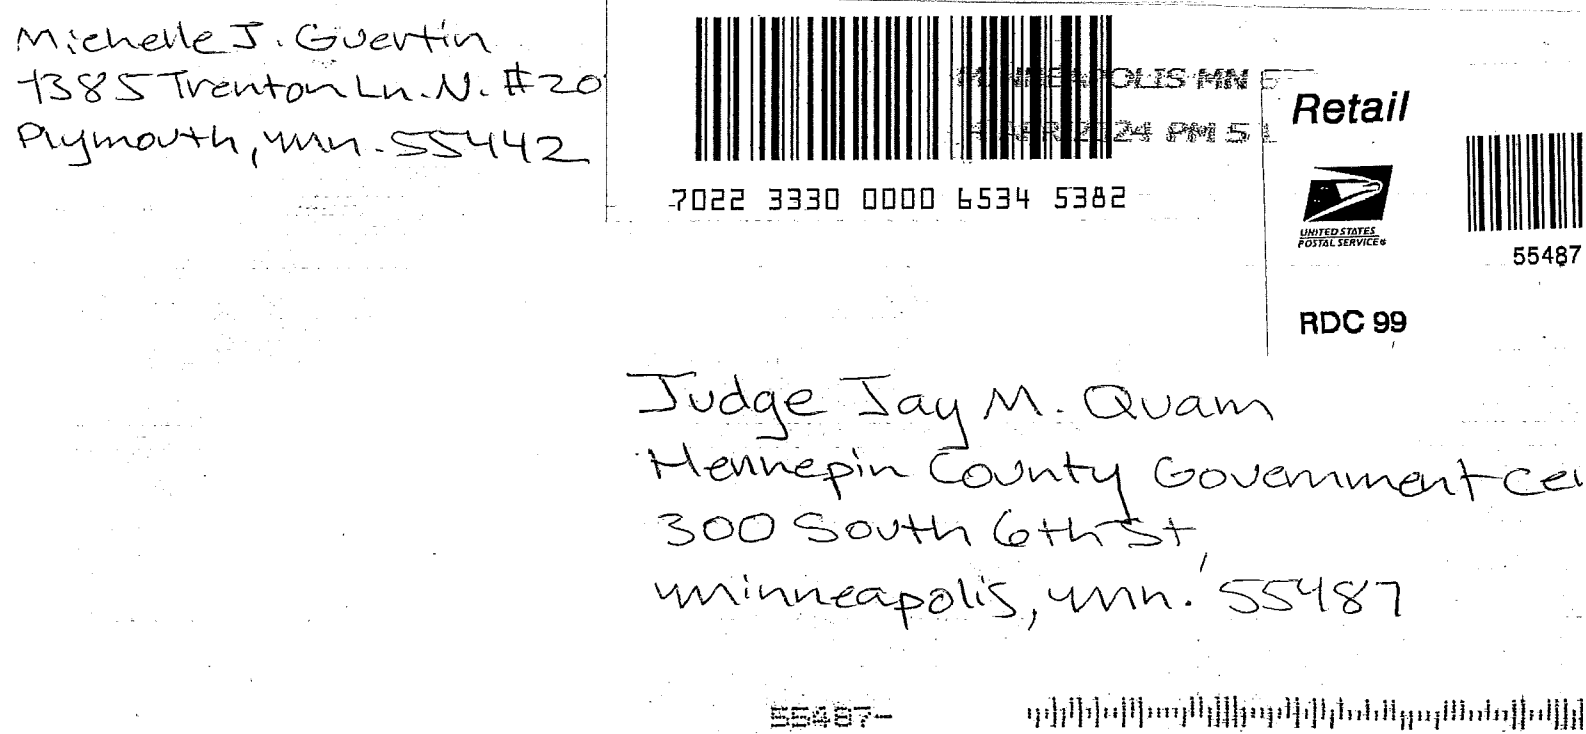 Michelle J. Guertin
4385 Trenton Ln. N. #20
Plymouth, Mn. 55442
MINNEAPOLIS MN
PM 5 L
7022 3330 0000 6534 5382
Retail
UNITED STATES
POSTAL SERVICE®
55487
RDC 99
Judge Jay M. Quam
Hennepin County Government Cen
300 South 6th St,
Minneapolis, Mn. 55487
55487-